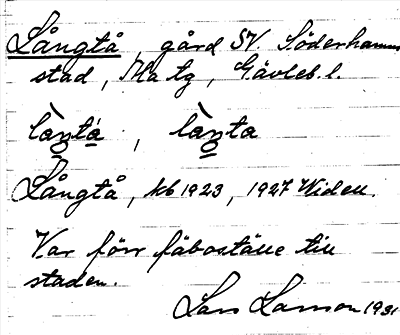 Långtå, gård SV. Söderhamns
stad, Ma tg, Gävleb. l.
Långtå, kb 1923, 1927 Widen.
Var förr fäboställe till
staden.
Lars Larsson 1931